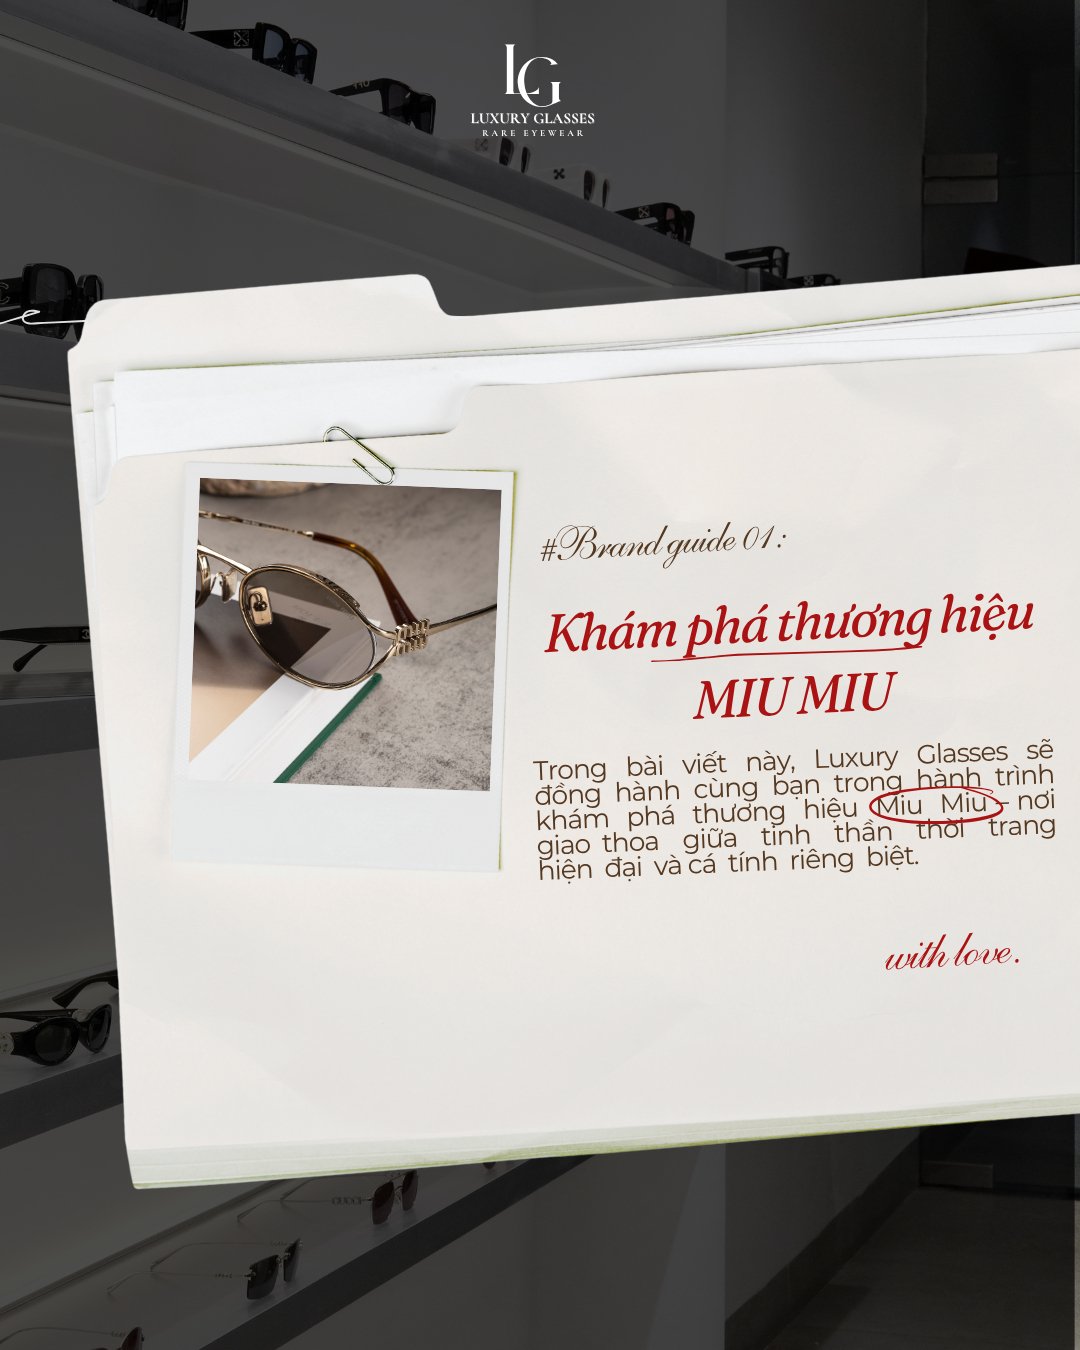 LG
LUXURY GLASSES
RARE EYEWEAR
#Brand guide 01:
Khám phá thương hiệu
MIU MIU
Trong bài viết này, Luxury Glasses sẽ
đồng hành cùng bạn trong hành trình
khám phá thương hiệu Miu Miu – nơi
giao thoa giữa tinh thần thời trang
hiện đại và cá tính riêng biệt.
with love.